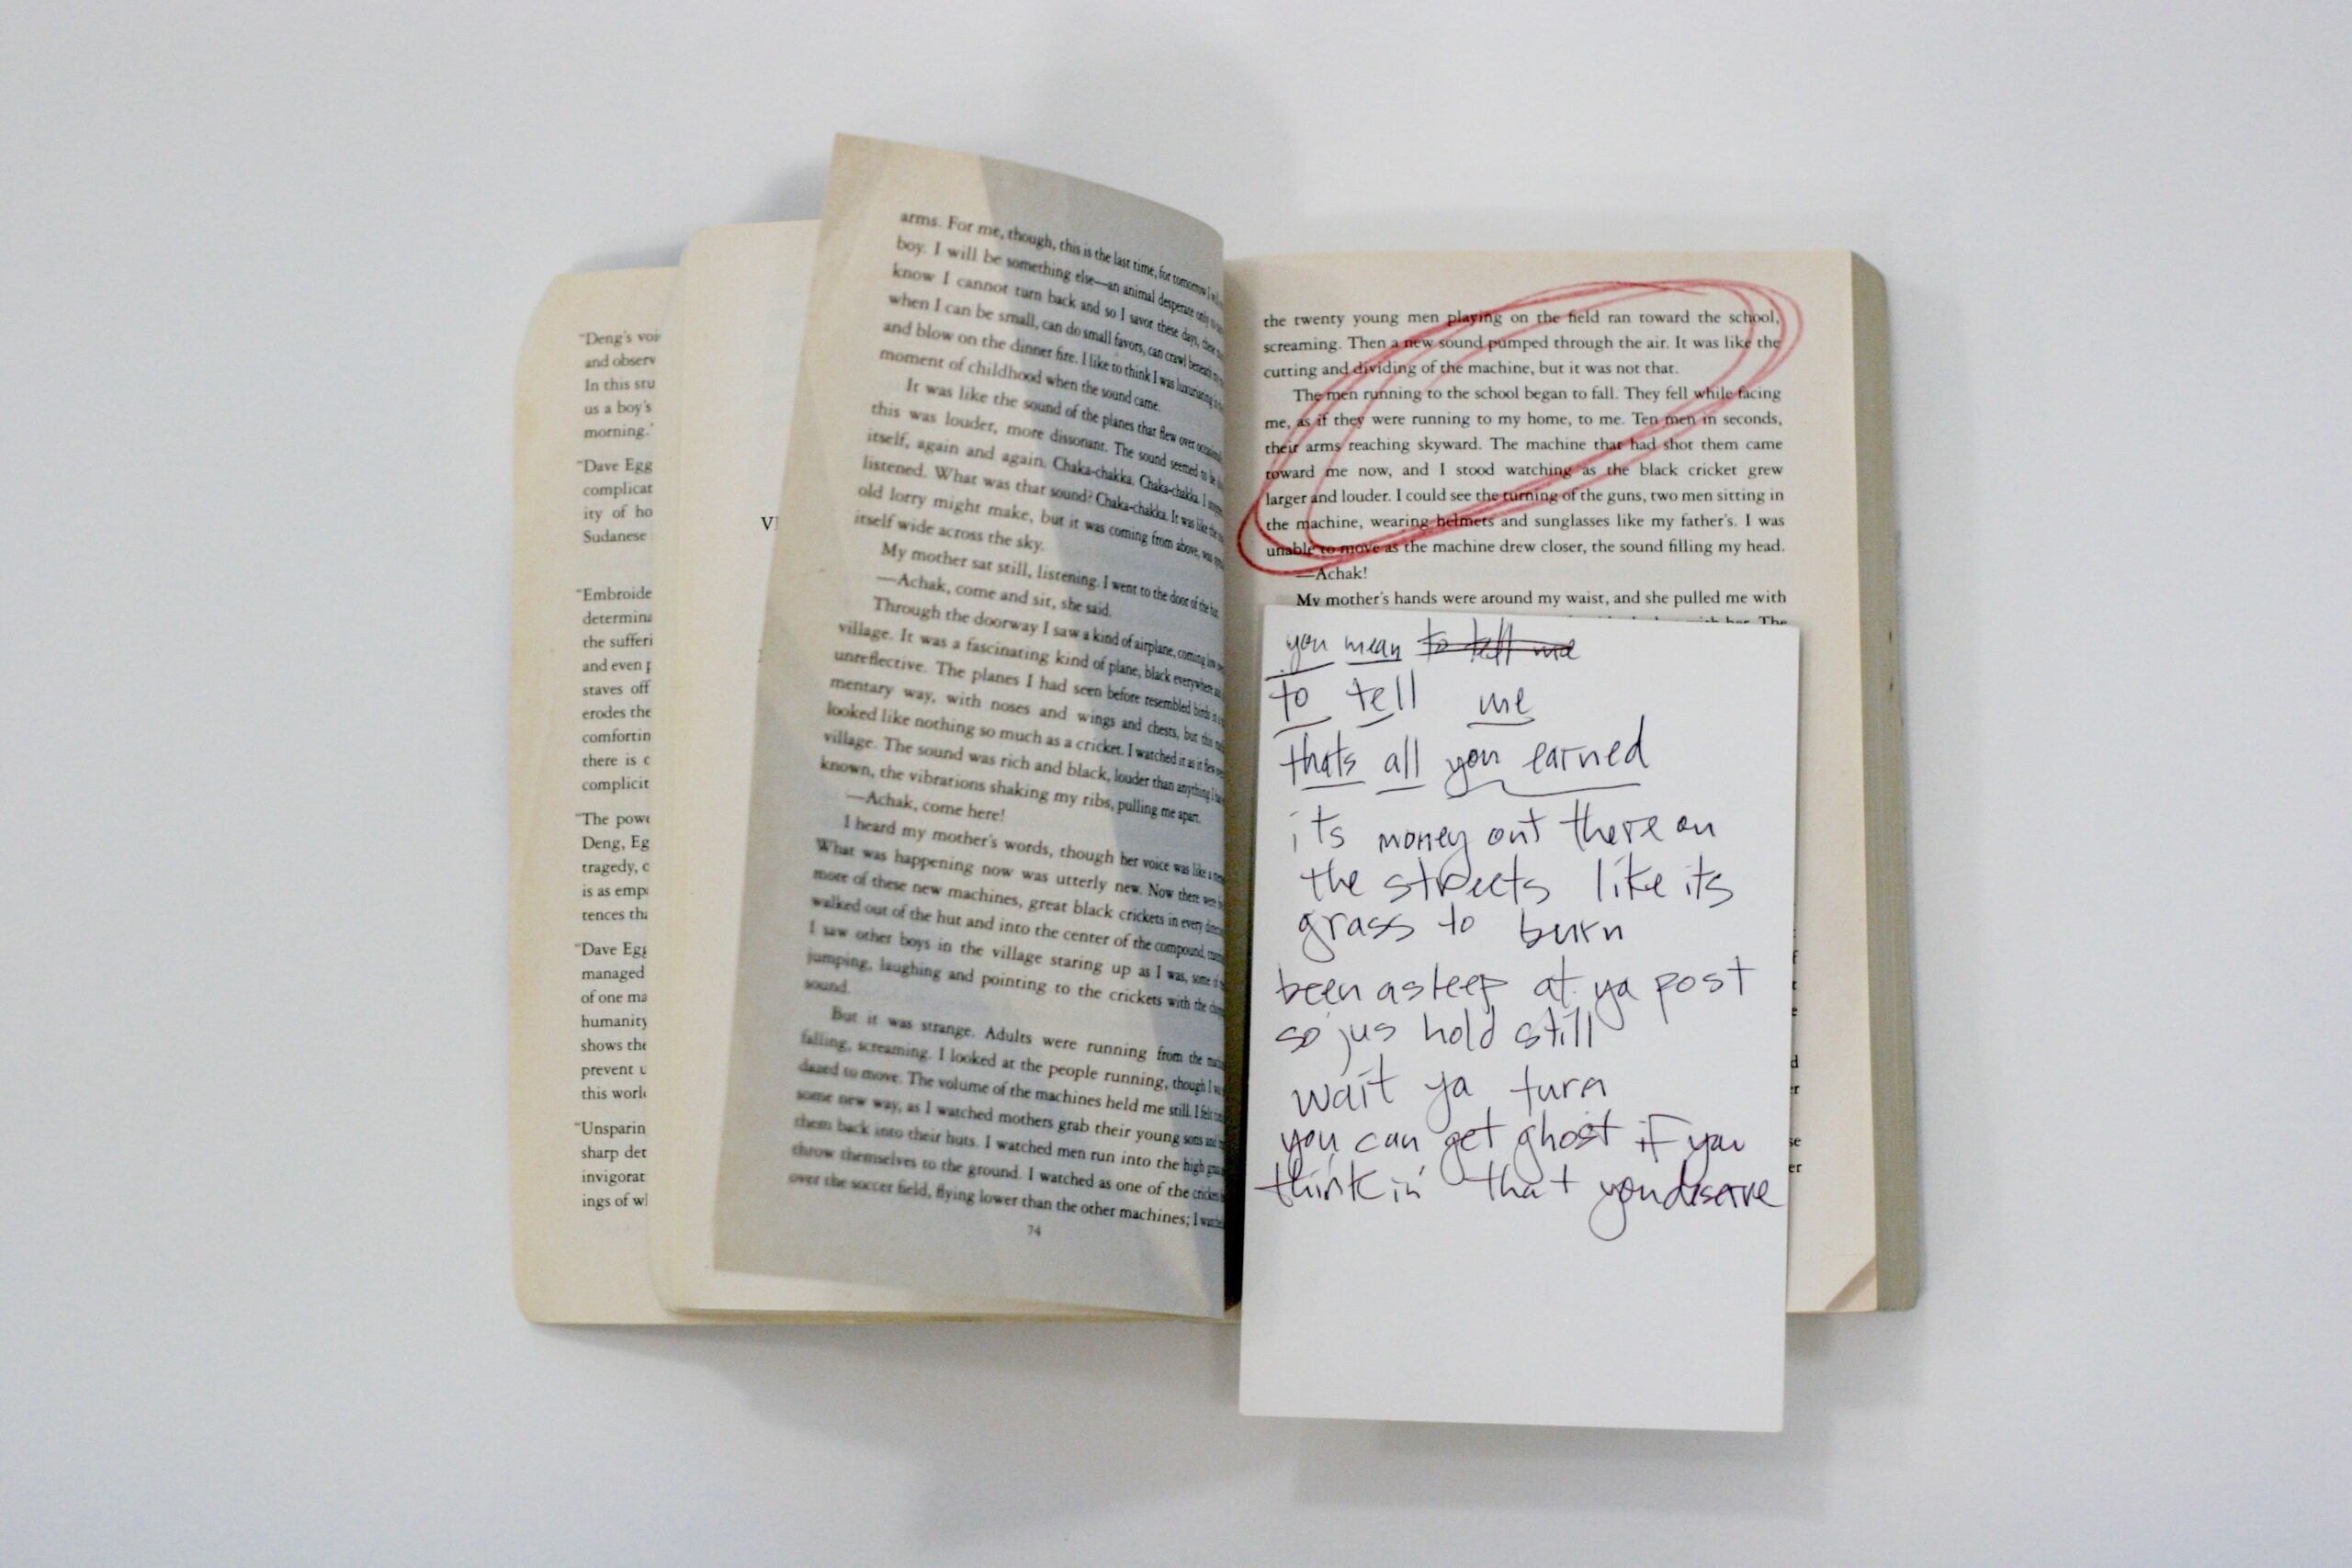 "Deng's
and observ
In this stu
us a boy's
morning."
"Dave Egg
complicat
ity of ho
Sudanese
"Embroide
determina
the sufferi
and even p
staves off
erodes the
comfortin
there is c
complicit
"The powe
Deng, Eg
tragedy, c
is as empa
tences tha
"Dave Egg
managed
of one ma
humanity
shows the
prevent u
this world
"Unsparin
sharp det
invigorat
ings of wh
arms. For me, though, this is the last time, for tomorrow I
boy. I will be something else—an animal desperate only
know I cannot turn back and so I savor these days, these
when I can be small, can do small favors, can crawl beneath
and blow on the dinner fire. I like to think I was luxuriating
moment of childhood when the sound came.
It was like the sound of the planes that flew over
this was louder, more dissonant. The sound seemed to be
itself, again and again. Chaka-chakka. Chaka-chakka. I
listened. What was that sound? Chaka-chakka. It was like the
old lorry might make, but it was coming from above, was
itself wide across the sky.
My mother sat still, listening. I went to the door of the hut.
—Achak, come and sit, she said.
Through the doorway I saw a kind of airplane, coming low
village. It was a fascinating kind of plane, black everywhere
unreflective. The planes I had seen before resembled birds
mentary way, with noses and wings and chests, but this
looked like nothing so much as a cricket. I watched it as it flew
village. The sound was rich and black, louder than anything I
known, the vibrations shaking my ribs, pulling me apart.
—Achak, come here!
I heard my mother's words, though her voice was like a
What was happening now was utterly new. Now there were
more of these new machines, great black crickets in every
walked out of the hut and into the center of the compound,
I saw other boys in the village staring up as I was, some
jumping, laughing and pointing to the crickets with the
sound.
But it was strange. Adults were running from the
falling, screaming. I looked at the people running, though I
dazed to move. The volume of the machines held me still. I felt
some new way, as I watched mothers grab their young sons and
them back into their huts. I watched men run into the high
throw themselves to the ground. I watched as one of the
over the soccer field, flying lower than the other machines; I
74
the twenty young men playing on the field ran toward the school,
screaming. Then a new sound pumped through the air. It was like the
cutting and dividing of the machine, but it was not that.
The men running to the school began to fall. They fell while facing
me, as if they were running to my home, to me. Ten men in seconds,
their arms reaching skyward. The machine that had shot them came
toward me now, and I stood watching as the black cricket grew
larger and louder. I could see the turning of the guns, two men sitting in
the machine, wearing helmets and sunglasses like my father's. I was
unable to move as the machine drew closer, the sound filling my head.
—Achak!
My mother's hands were around my waist, and she pulled me with
you mean to tell me
to tell me
thats all you earned
its money out there on
the streets like its
grass to burn
been asleep at ya post
so jus hold still
wait ya turn
you can get ghost if you
thinkin that you deserve